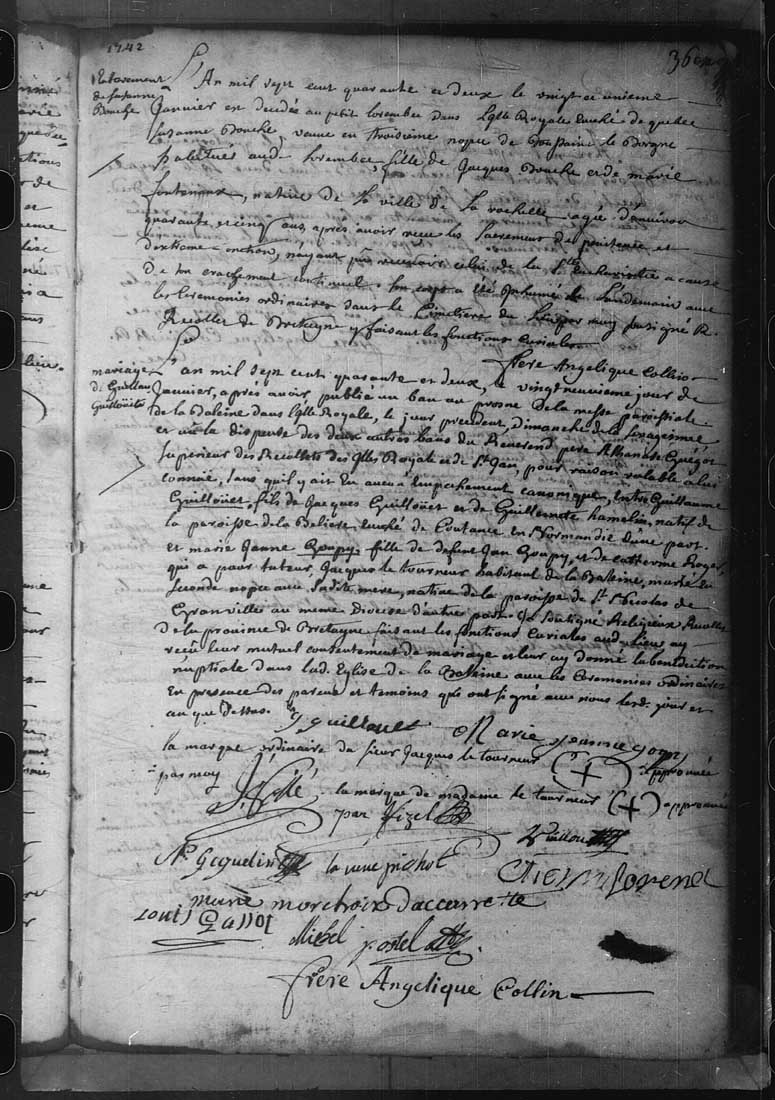 1742
36eme
Enterrement
de Suzanne
Bouche
L'An mil sept cent quarante et deux le vingt et unieme
Janvier est decedée au petit Lorembec dans L'isle Royale Evêché de quebec
Suzanne Bouche, veuve en troisieme nopce de le Borgne
habitués aud. Lorembec, fille de Jacques Bouche et de marie
fonteneaux, native de La ville de La rochelle agée d'environ
quarante et cinq ans, aprés avoir receu les Sacrements de penitence et
d'extreme-onction, n'ayant pu recevoir celui de la Ste Eucharistie a cause
De son crachement continuel. Son corps a été Inhumé le Lendemain avec
les Ceremonies ordinaires dans le Cimetiere du par moy soussigné R.
Recollet de Bretagne y faisant les fonctions Curiales.
frere Angelique Collin
mariage
de Guillau
Guilloüet
L'an mil sept cent quarante et deux, le vingt neuvieme jour de
Janvier, aprés avoir publié un ban au prosne De la messe paroissiale
de la Baleine dans L'isle Royale, le jour precedent, Dimanche de la Sexagesime
et vû la dispense des deux autres bans du Reverend pere Athanase Guégot
Superieur des Recollets des Isles Royale et de St Jean, pour raison valable a lui
connüe, sans qu'il y ait Eu aucun Empechement canonique, Entre Guillaume
Guilloüet, fils de Jacques Guilloüet et de Guillemette hamelin, natif de
la paroisse de la Beliere, Evêché de Coutance en Normandie d'une part.
et marie Jeanne Goupy, fille de defunt Jean Goupy, et de catherine Roger,
qui a pour tuteur, Jacques le tourneur habitant de la Balleine, marié en
seconde nopce avec Sa dite mere, native de la paroisse de St Nicolas de
Granville au meme Diocese d'autre part. Je Soussigné Religieux Recollet
De la province de Bretagne faisant les fonctions Curiales aud. Lieu ay
receu leur mutuel consentement de mariage et leur ay donné la benediction
nuptiale dans lad. Eglise de la Balleine avec les Ceremonies ordinaires
En presence des parens et temoins qui ont signé avec nous lesd. jour et
an que Dessus.
g guillouet
Marie jeanne goupy
la marque ordinaire du sieur Jacques le tourneur (+) approuvée
pas moy
la marque de madame le tourneur (+) approuvée
par
la veuve pichot
marie
Louis
Michel postel
frere Angelique Collin